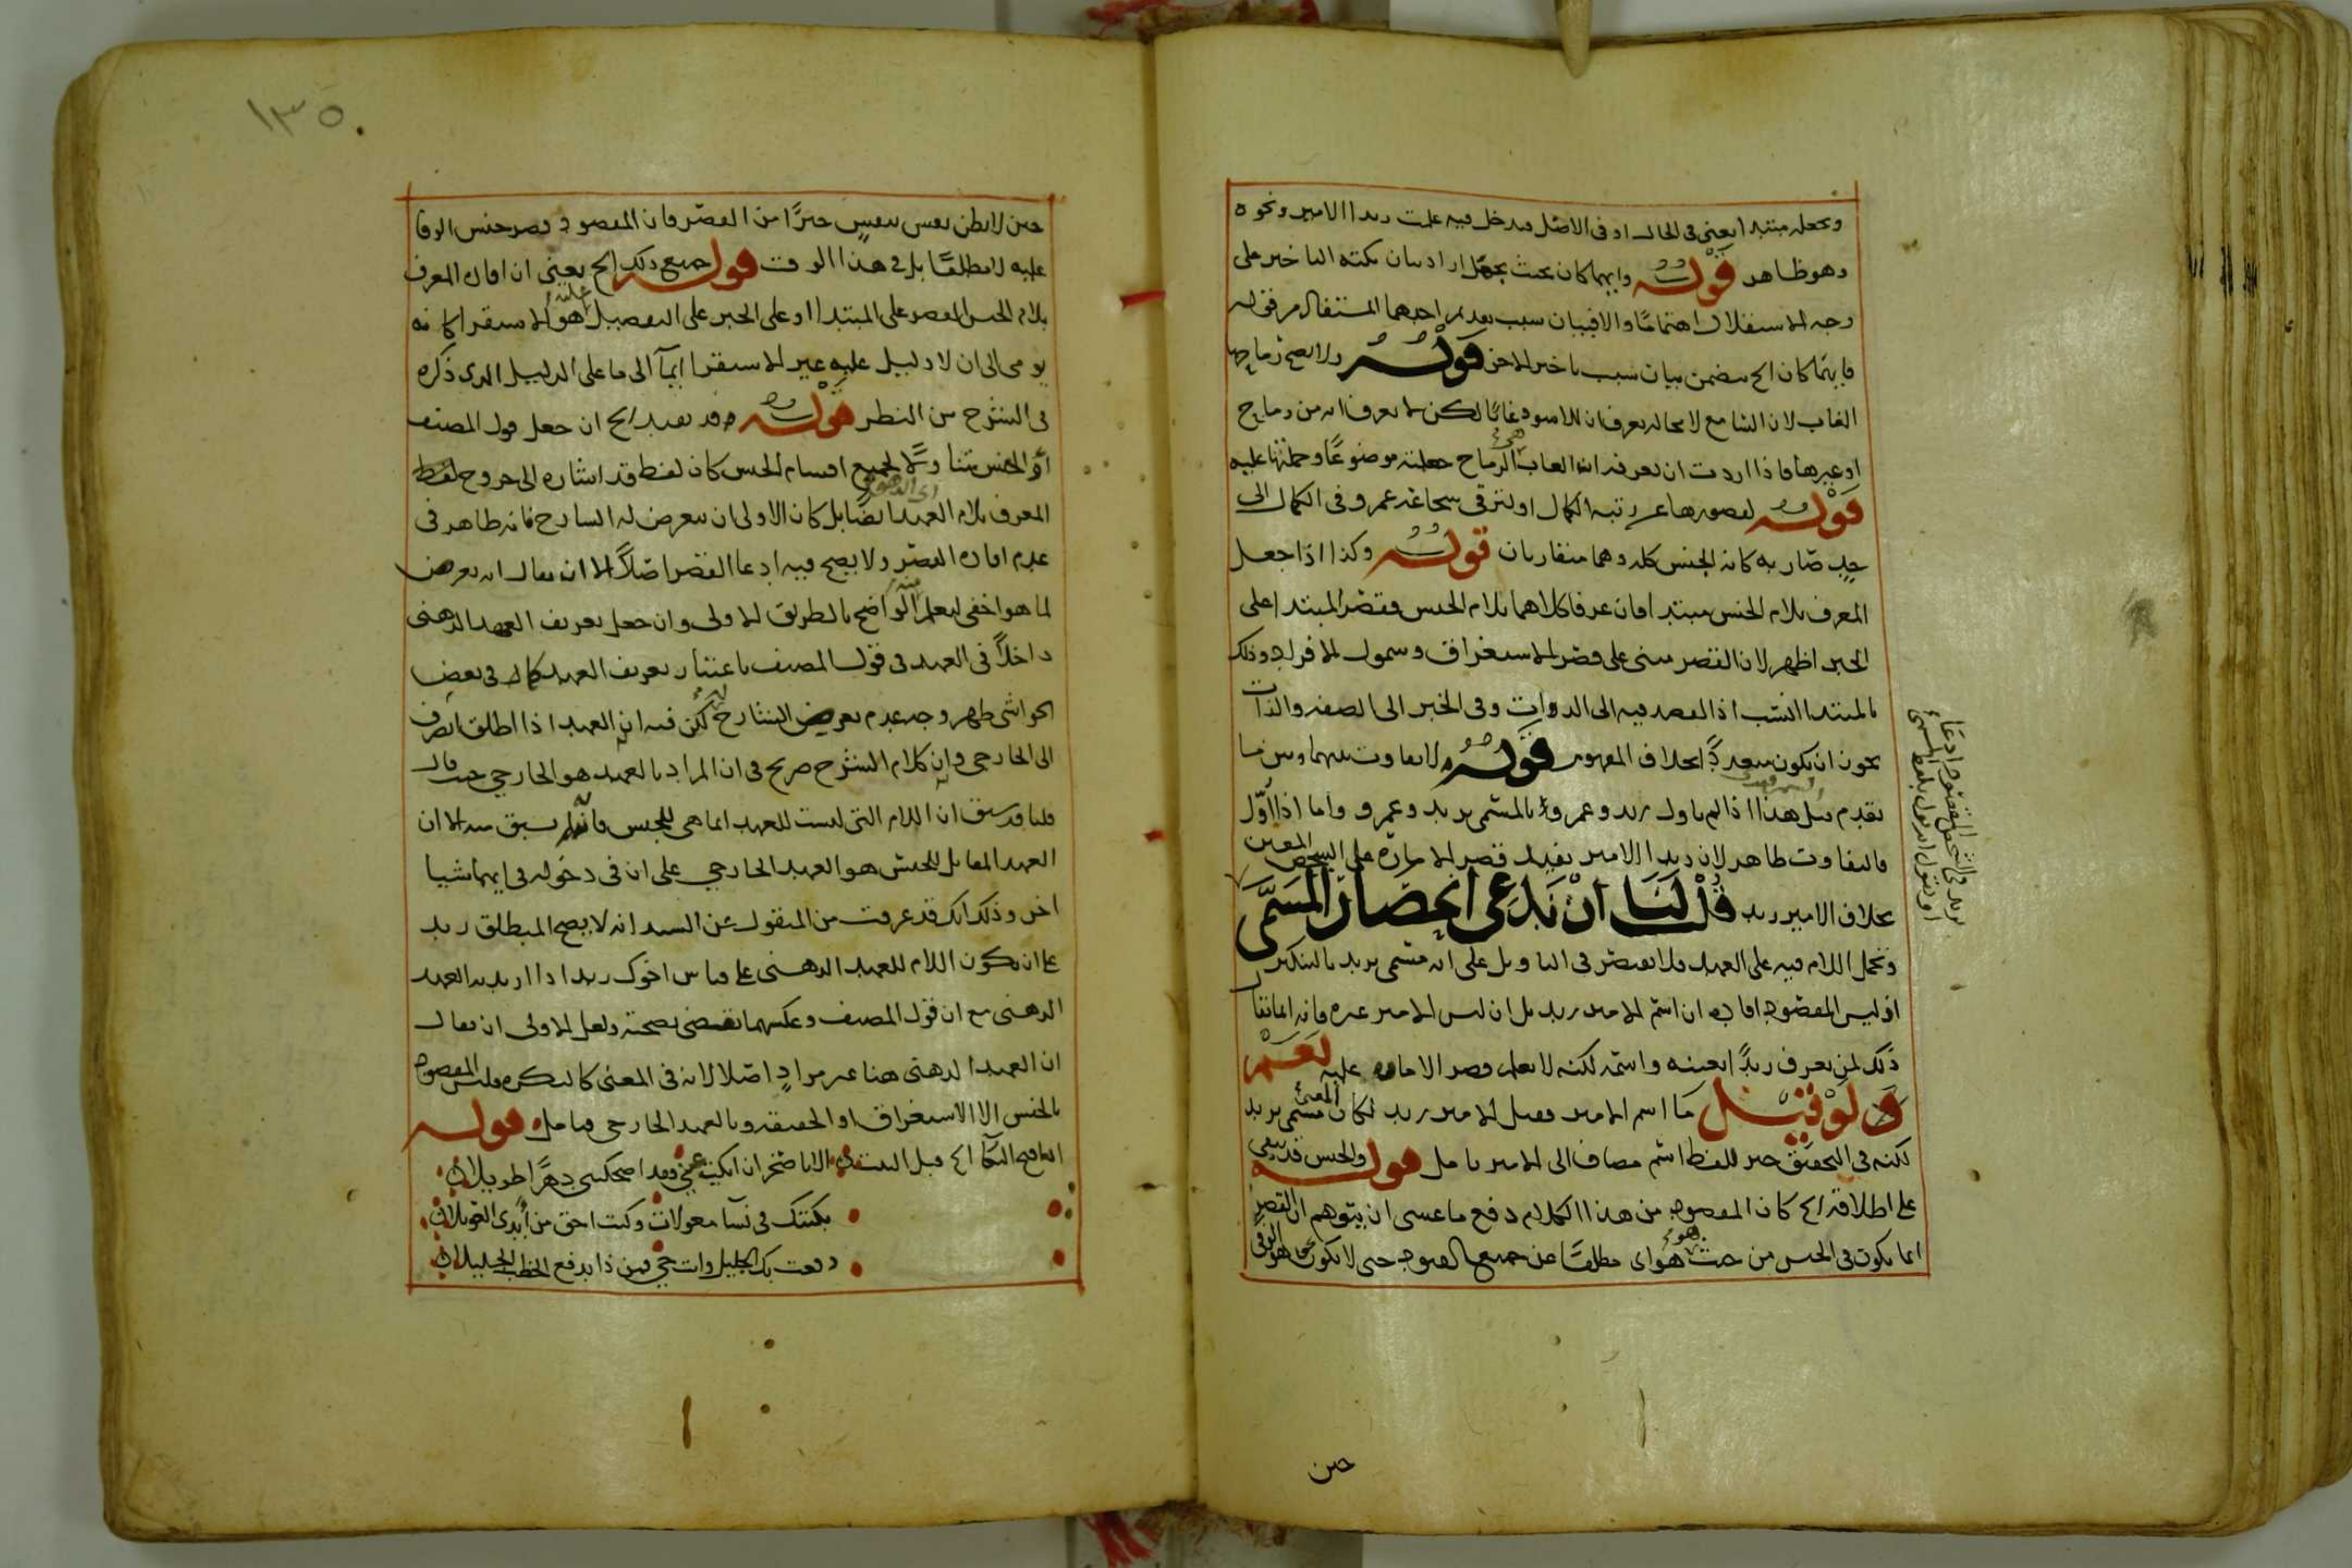 ويجعله مبتدا يعني في الحال او في الاصل فيدخل فيه علمت زيدا الامير ونحوه
وهو ظاهر قوله وايهما كان بحيث يجهل اراد بيان نكتة التاخير على
وجه الاستقلال اهتماما والا فبيان سبب تقديم احدهما المستفاد من قوله
فايهما كان الخ يتضمن بيان سبب تاخير الاخر قوله ولا يصح رماحها
الغاب لان السامع لا محالة يعرف ان للاسود غابا لكن لا يعرف انه من رماح
او غيرها فاذا اردت ان تعرفه ان الغاب هي الرماح جعلته موضوعا وحملتها عليه
قوله لقصورها عن رتبة الكمال او لترقي شجاعة عمرو في الكمال الى
حد صار به كانه الجنس كله وهما متقاربان قوله وكذا اذا جعل
المعرف بلام الجنس مبتدا فان عرفا كلاهما بلام الجنس فقصر المبتدا على
الخبر اظهر لان القصر مبني على قصر الاستغراق وشمول الافراد وذلك
بالمبتدا انسب اذ القصد فيه الى الذوات وفي الخبر الى الصفة والذات
يجوز ان يكون متعددا بخلاف المفهوم قوله ولا تفاوت بينهما وبين ما
تقدم قيل هذا اذا لم ياول زيد وعمرو بالمسمى بزيد وعمرو واما اذا اول
فالتفاوت ظاهر لان زيدا الامير يفيد قصر الامارة على الشخص المعين
بخلاف الامير زيد قلنا لنا ان ندعي انحصار المسمى
ونحمل اللام فيه على العهد فلا نقتصر في التاويل على انه مسمى بزيد بالتنكير
اذ ليس المقصود افادة ان اسم الامير زيد بل ان ليس الامير غيره فانه انما يقال
ذلك لمن يعرف زيدا بعينه واسمه لكنه لا يعلم قصر الامارة عليه نعم
ولو قيل ما اسم الامير فقيل الامير زيد لكان المعنى مسمى بزيد
لكنه في التحقيق خبر للفظ اسم مضاف الى الامير تامل قوله والجنس قد يبقى
على اطلاقه الخ كان المقصود من هذا الكلام دفع ما عسى ان يتوهم ان القصر
انما يكون في الجنس من حيث هو هو اي مطلقا عن جميع القيود حتى لا يكون هو الوفي
حين
١٣٥
حين لا يظن نفس بنفس خيرا من القصر فان المقصود قصر جنس الوفا
عليه لا مطلقا بل في هذا الوقت قوله جميع ذلك الخ يعني ان افادة المعرف
بلام الجنس القصر على المبتدا او على الخبر على التفصيل الاستقرا كانه
يومي الى ان لا دليل عليه غير الاستقرا ايمآ الى ما على الدليل الذي ذكره
في الشرح من النظر قوله وقد يفيد الخ ان جعل قول المصنف
او الجنس متناولا لجميع اقسام الجنس كان لفظ قد اشارة الى خروج لفظ
المعرف بلام العهد ايضا بل كان الاولى ان يتعرض له الشارح فانه ظاهر في
عدم افادة القصر ولا يصح فيه ادعا القصر اصلا الا ان يقال انه تعرض
لما هو اخفى ليعلم منه الواضح بالطريق الاولى وان جعل تعريف العهد الذهني
داخلا في العهد في قول المصنف باعتبار تعريف العهد كما في بعض
الحواشي ظهر وجه عدم تعرض الشارح لكن فيه ان العهد اذا اطلق انصرف
الى الخارجي وان كلام الشرح صريح في ان المراد بالعهد هو الخارجي حيث قال
فيما قد سبق ان اللام التي ليست للعهد انما هي للجنس فانه لم يسبق منه الا ان
العهد المقابل للجنس هو العهد الخارجي على ان في دخوله في ايهما شيا
اخر وذلك انك قد عرفت من المنقول عن السيد انه لا يصح المنطلق زيد
على ان يكون اللام للعهد الذهني على قياس اخوك زيد اذا اريد به العهد
الذهني مع ان قول المصنف وعكسهما يقتضي بصحته ولعل الاولى ان يقال
ان العهد الذهني هنا غير مراد اصلا لانه في المعنى كالنكرة فليس المقصود
بالجنس الا الاستغراق او الحقيقة وبالعهد الخارجي فتامل قوله
البكآ الخ قبل البيت الا يا صخر ان ابكيت عيني فقد اضحكتني دهرا طويلا
بكيتك في نسآ معولات وكنت احق من ابدى العويلا
دفعت بك الجليل وانت حي فمن ذا يدفع الخطب الجليلا